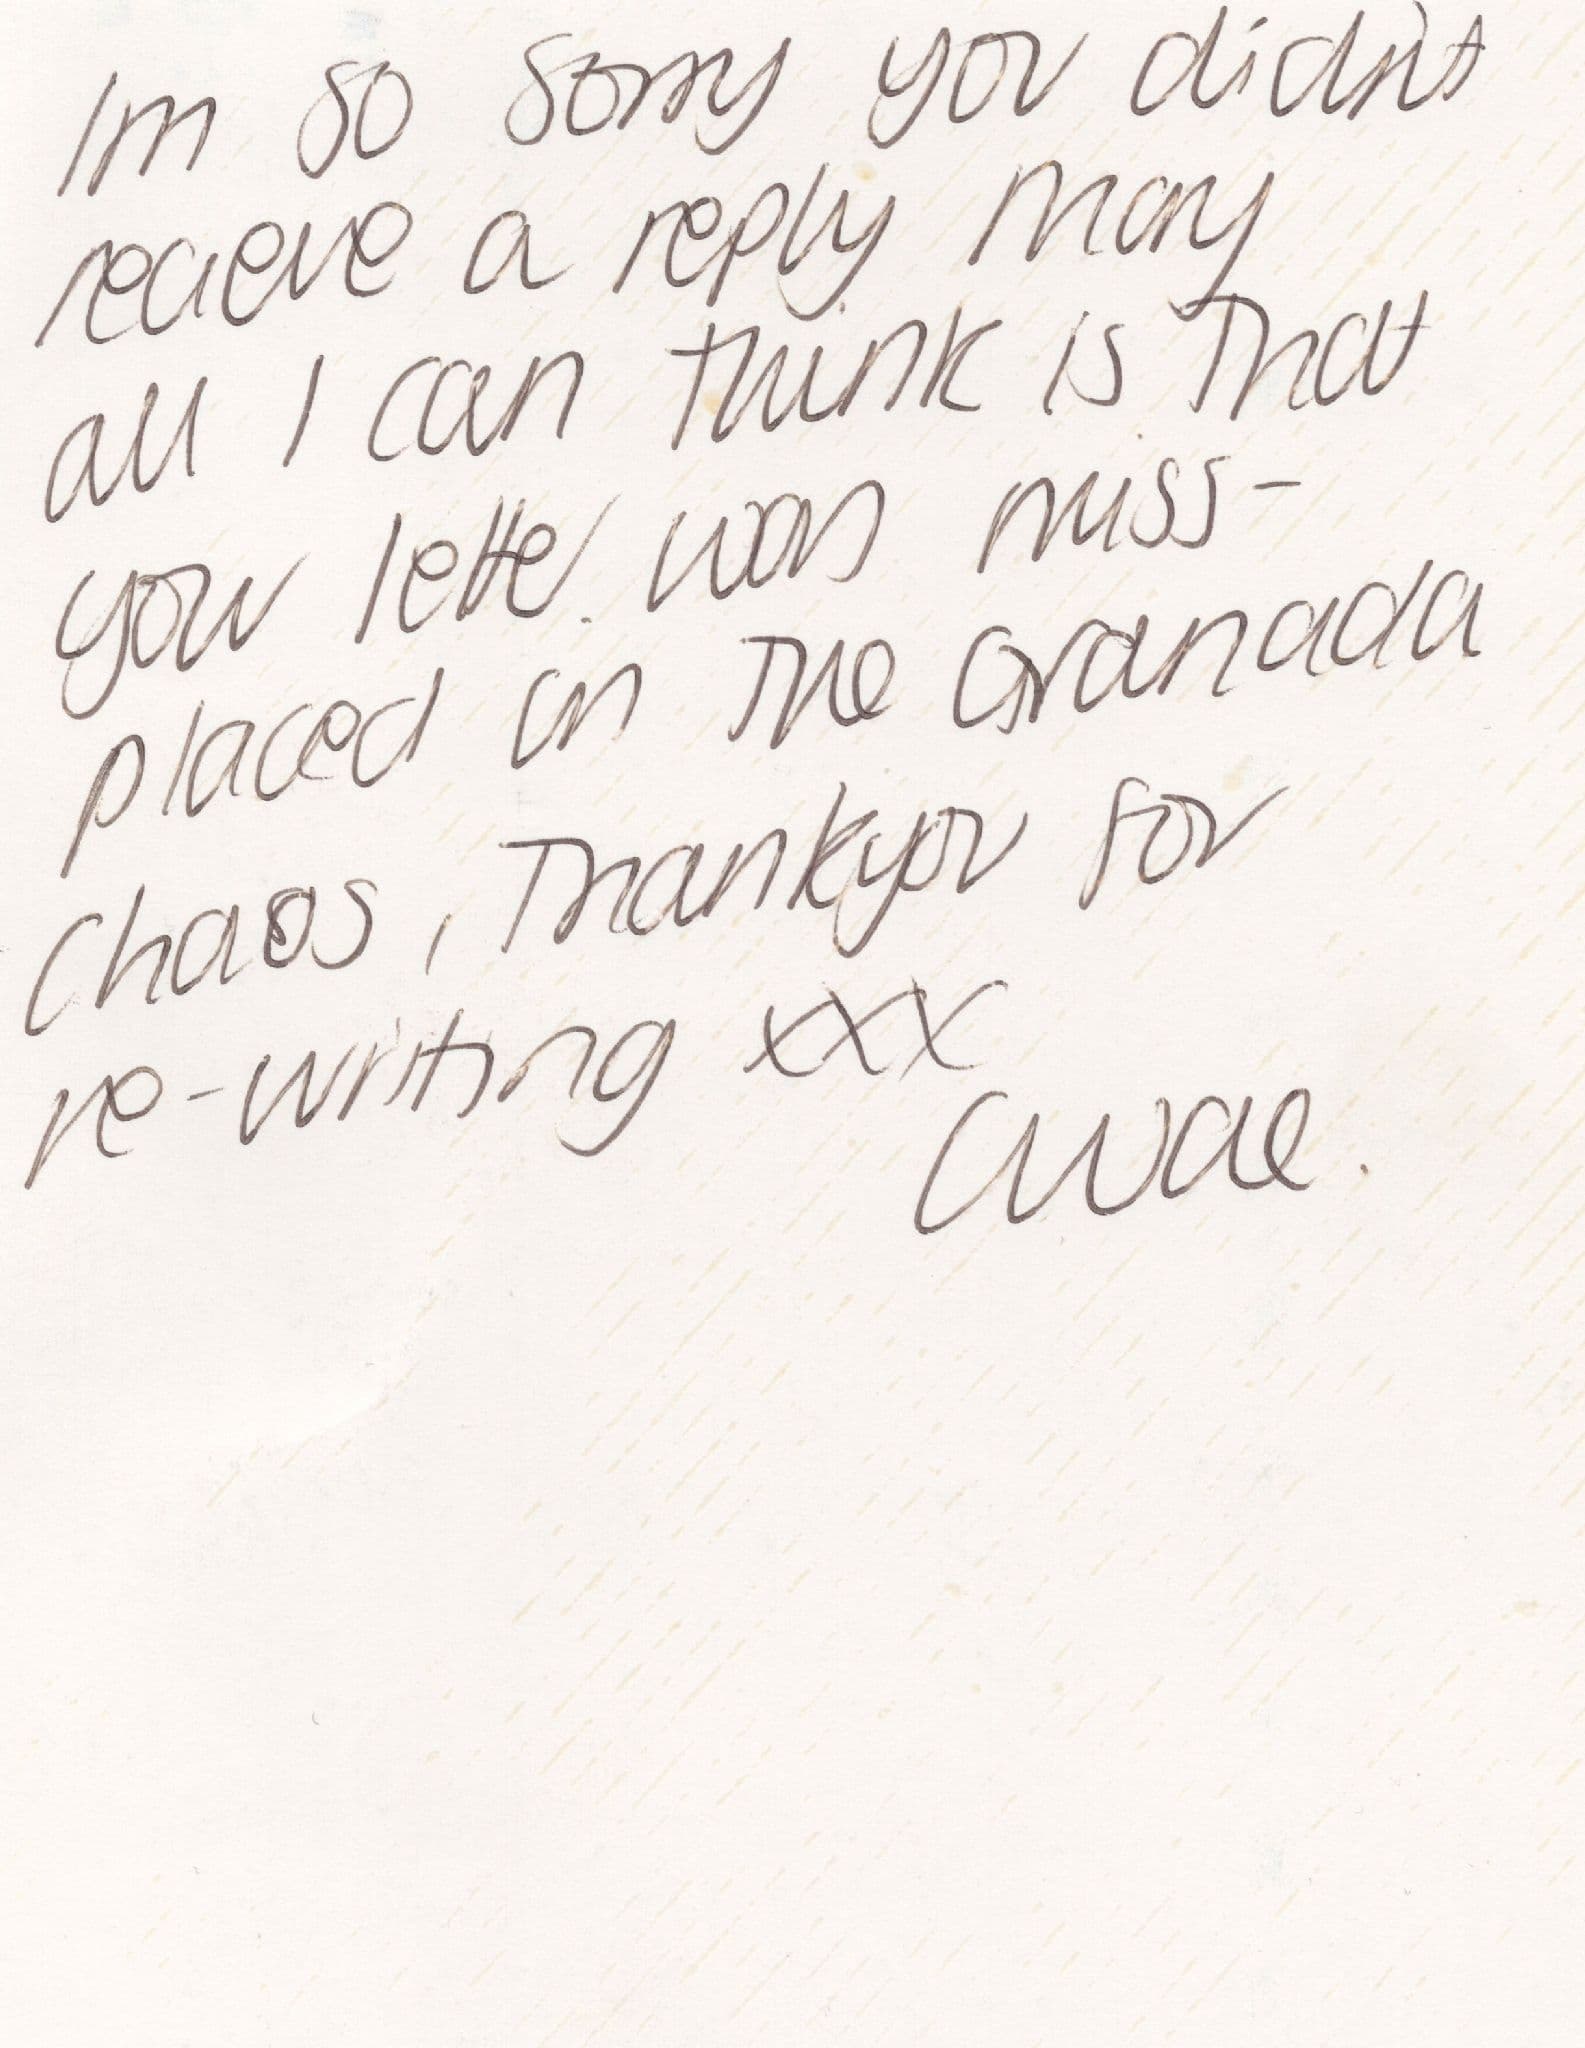 Im so sorry you didn't
recieve a reply may
all I can think is that
your letter was miss-
placed in the Granada
chaos, Thankyou for
re-writing xxx